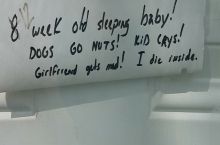 8 week old sleeping baby!
DOGS GO NUTS! KID CRYS!
Girlfriend gets mad! I die inside.